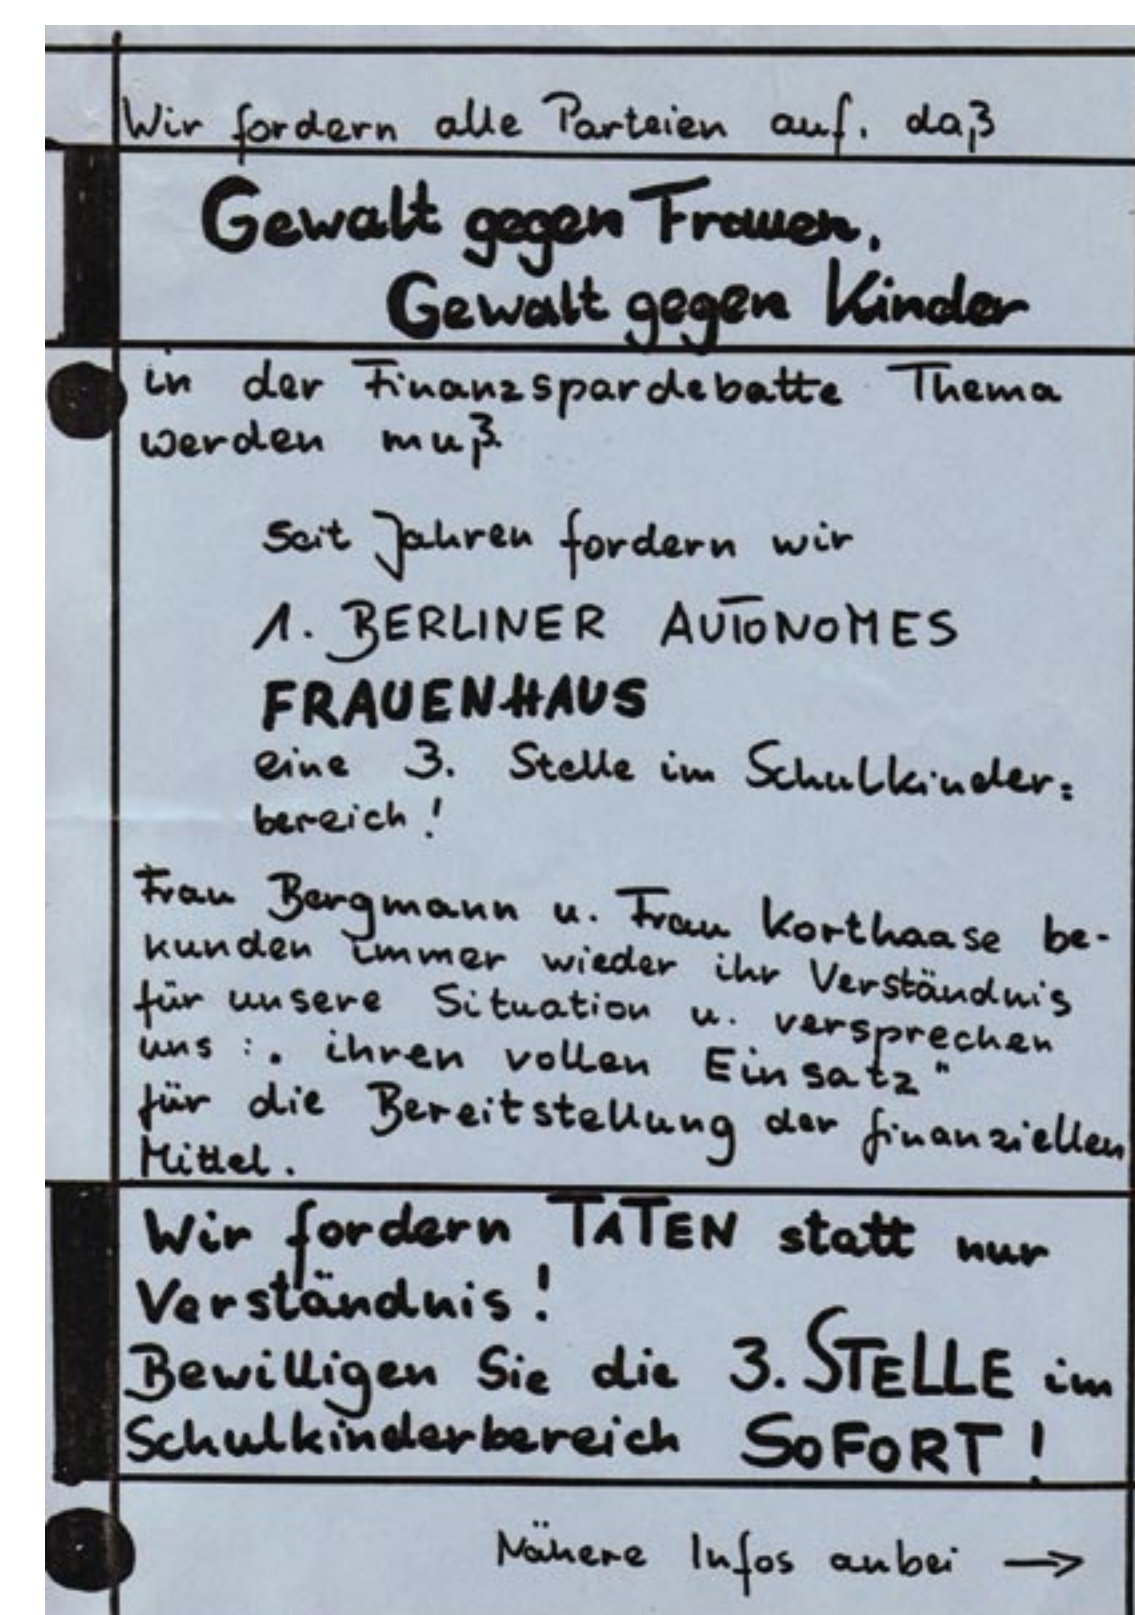 Wir fordern alle Parteien auf, daß
Gewalt gegen Frauen,
Gewalt gegen Kinder
in der Finanzspardebatte Thema
werden muß.
Seit Jahren fordern wir
1. BERLINER AUTONOMES
FRAUENHAUS
eine 3. Stelle im Schulkinder=
bereich!
Frau Bergmann u. Frau Korthaase be-
kunden immer wieder ihr Verständnis
für unsere Situation u. versprechen
uns : „ ihren vollen Einsatz"
für die Bereitstellung der finanziellen
Mittel.
Wir fordern TATEN statt nur
Verständnis!
Bewilligen Sie die 3. STELLE im
Schulkinderbereich SOFORT!
Nähere Infos anbei →